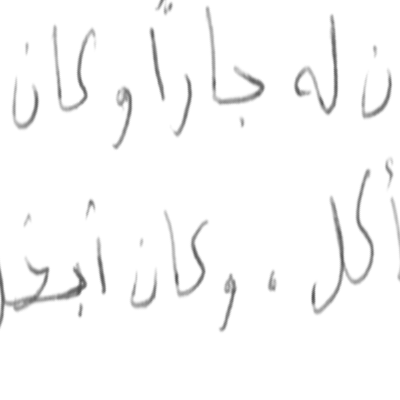 ن له جاراً وكان
أكل، وكان أبخل